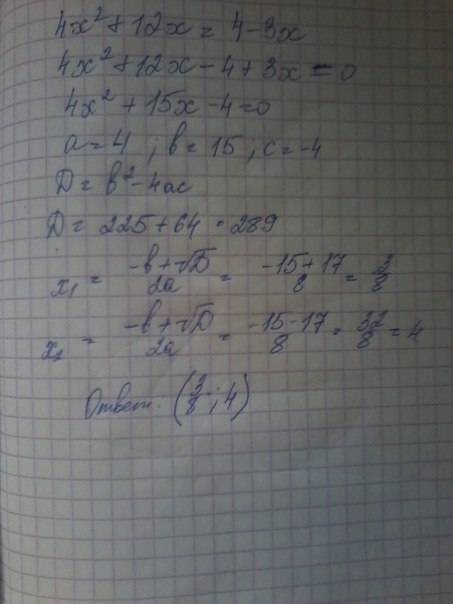 4x² + 12x = 4 - 3x
4x² + 12x - 4 + 3x = 0
4x² + 15x - 4 = 0
a = 4 ; b = 15 ; c = -4
D = b² - 4ac
D = 225 + 64 = 289
x₁ = (-b + √D)/2a = (-15 + 17)/8 = 3/8
x₂ = (-b + √D)/2a = (-15 - 17)/8 = 32/8 = 4
Ответ. (3/8 ; 4)